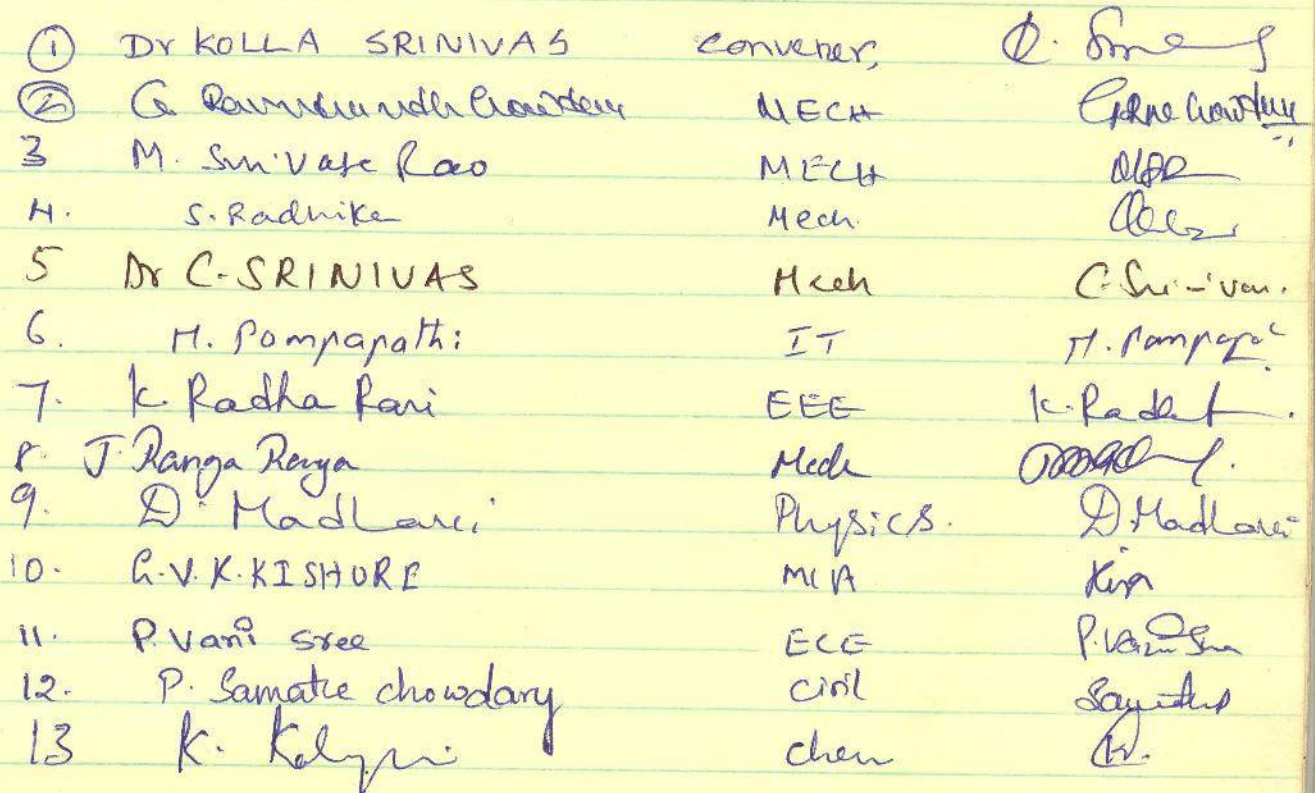 1 Dr KOLLA SRINIVAS convener,
2 G MECH
3 M. Srinivasa Rao MECH
4. S. Radhika Mech.
5 Dr C. SRINIVAS Mech C. Srinivas.
6. M. Pompapathi IT M. Pompapa
7. K. Radha Rani EEE K. Radha
8. J. Ranga Raya Mech
9. D. Madhavi Physics. D. Madhavi
10. G.V.K. KISHORE MCA
11. P. Vani Sree ECE P. Vani Sree
12. P. Samatie chowdary Civil
13 K. Kalyani Chem K.